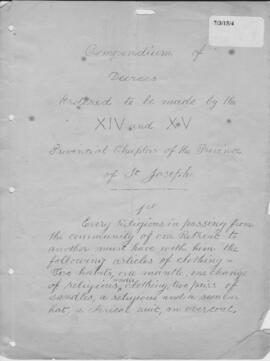 7/3/15/4
Compendium of
Decrees
ordered to be made by the
XIV and XV
Provincial Chapters of the Province
of St Joseph.
1st
Every religious in passing from
the community of one Retreat to
another must have with him the
following articles of clothing -
Two habits, one mantle, one change
of religious under clothing, two pairs of
sandles, a religious and a secular
hat, a clerical suit, an overcoat,